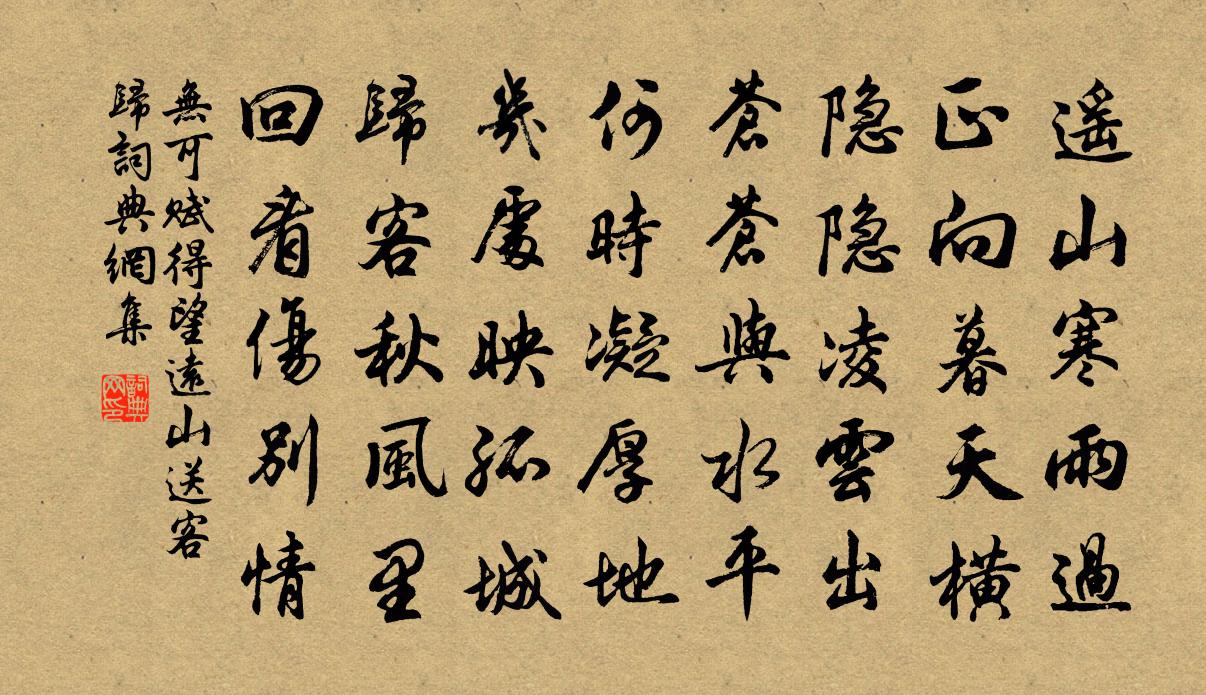 遥山寒雨過
正向暮天横
隐隐凌雲出
蒼蒼與水平
何時凝厚地
幾處映孤城
歸客秋風里
回看傷別情
無可賦得望遠山送客
歸詞典網集
詞典
网印